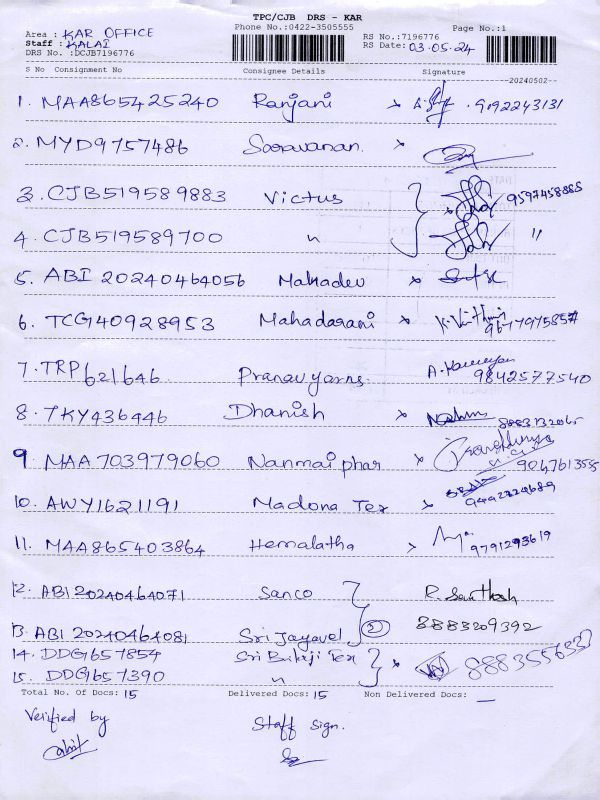 TPC/CJB DRS - KAR
Area : KAR OFFICE
Phone No.:0422-3505555
Page No.:1
Staff : KALAI
RS No.:7196776
DRS No. :DCJB7196776
RS Date: 03.05.24
S No Consignment No Consignee Details Signature
20240502
1. MAA865425240 Ranjani 9092243131
2. MYD9757486 Saravanan
3. CJB519589883 Victus 9597458885
4. CJB519589700 " "
5. ABI 20240464056 Mahadev
6. TCG140928953 Mahadarani
7. TRP621646 Pranav yarns 9842577540
8. TKY436446 Dhanish
9 MAA 703979060 Nanmai phar
10. AWY1621191 Madona Tex
11. MAA865403864 Hemalatha 9791293619
12. ABI 20240464071 Sanco R. Santhosh
13. ABI 20240464081 Sri Jayavel 2 8883209392
14. DDG1657854 Sri Balaji Tex
15. DDG1657390 "
Total No. Of Docs: 15 Delivered Docs: 15 Non Delivered Docs: —
Verified by Staff Sign.